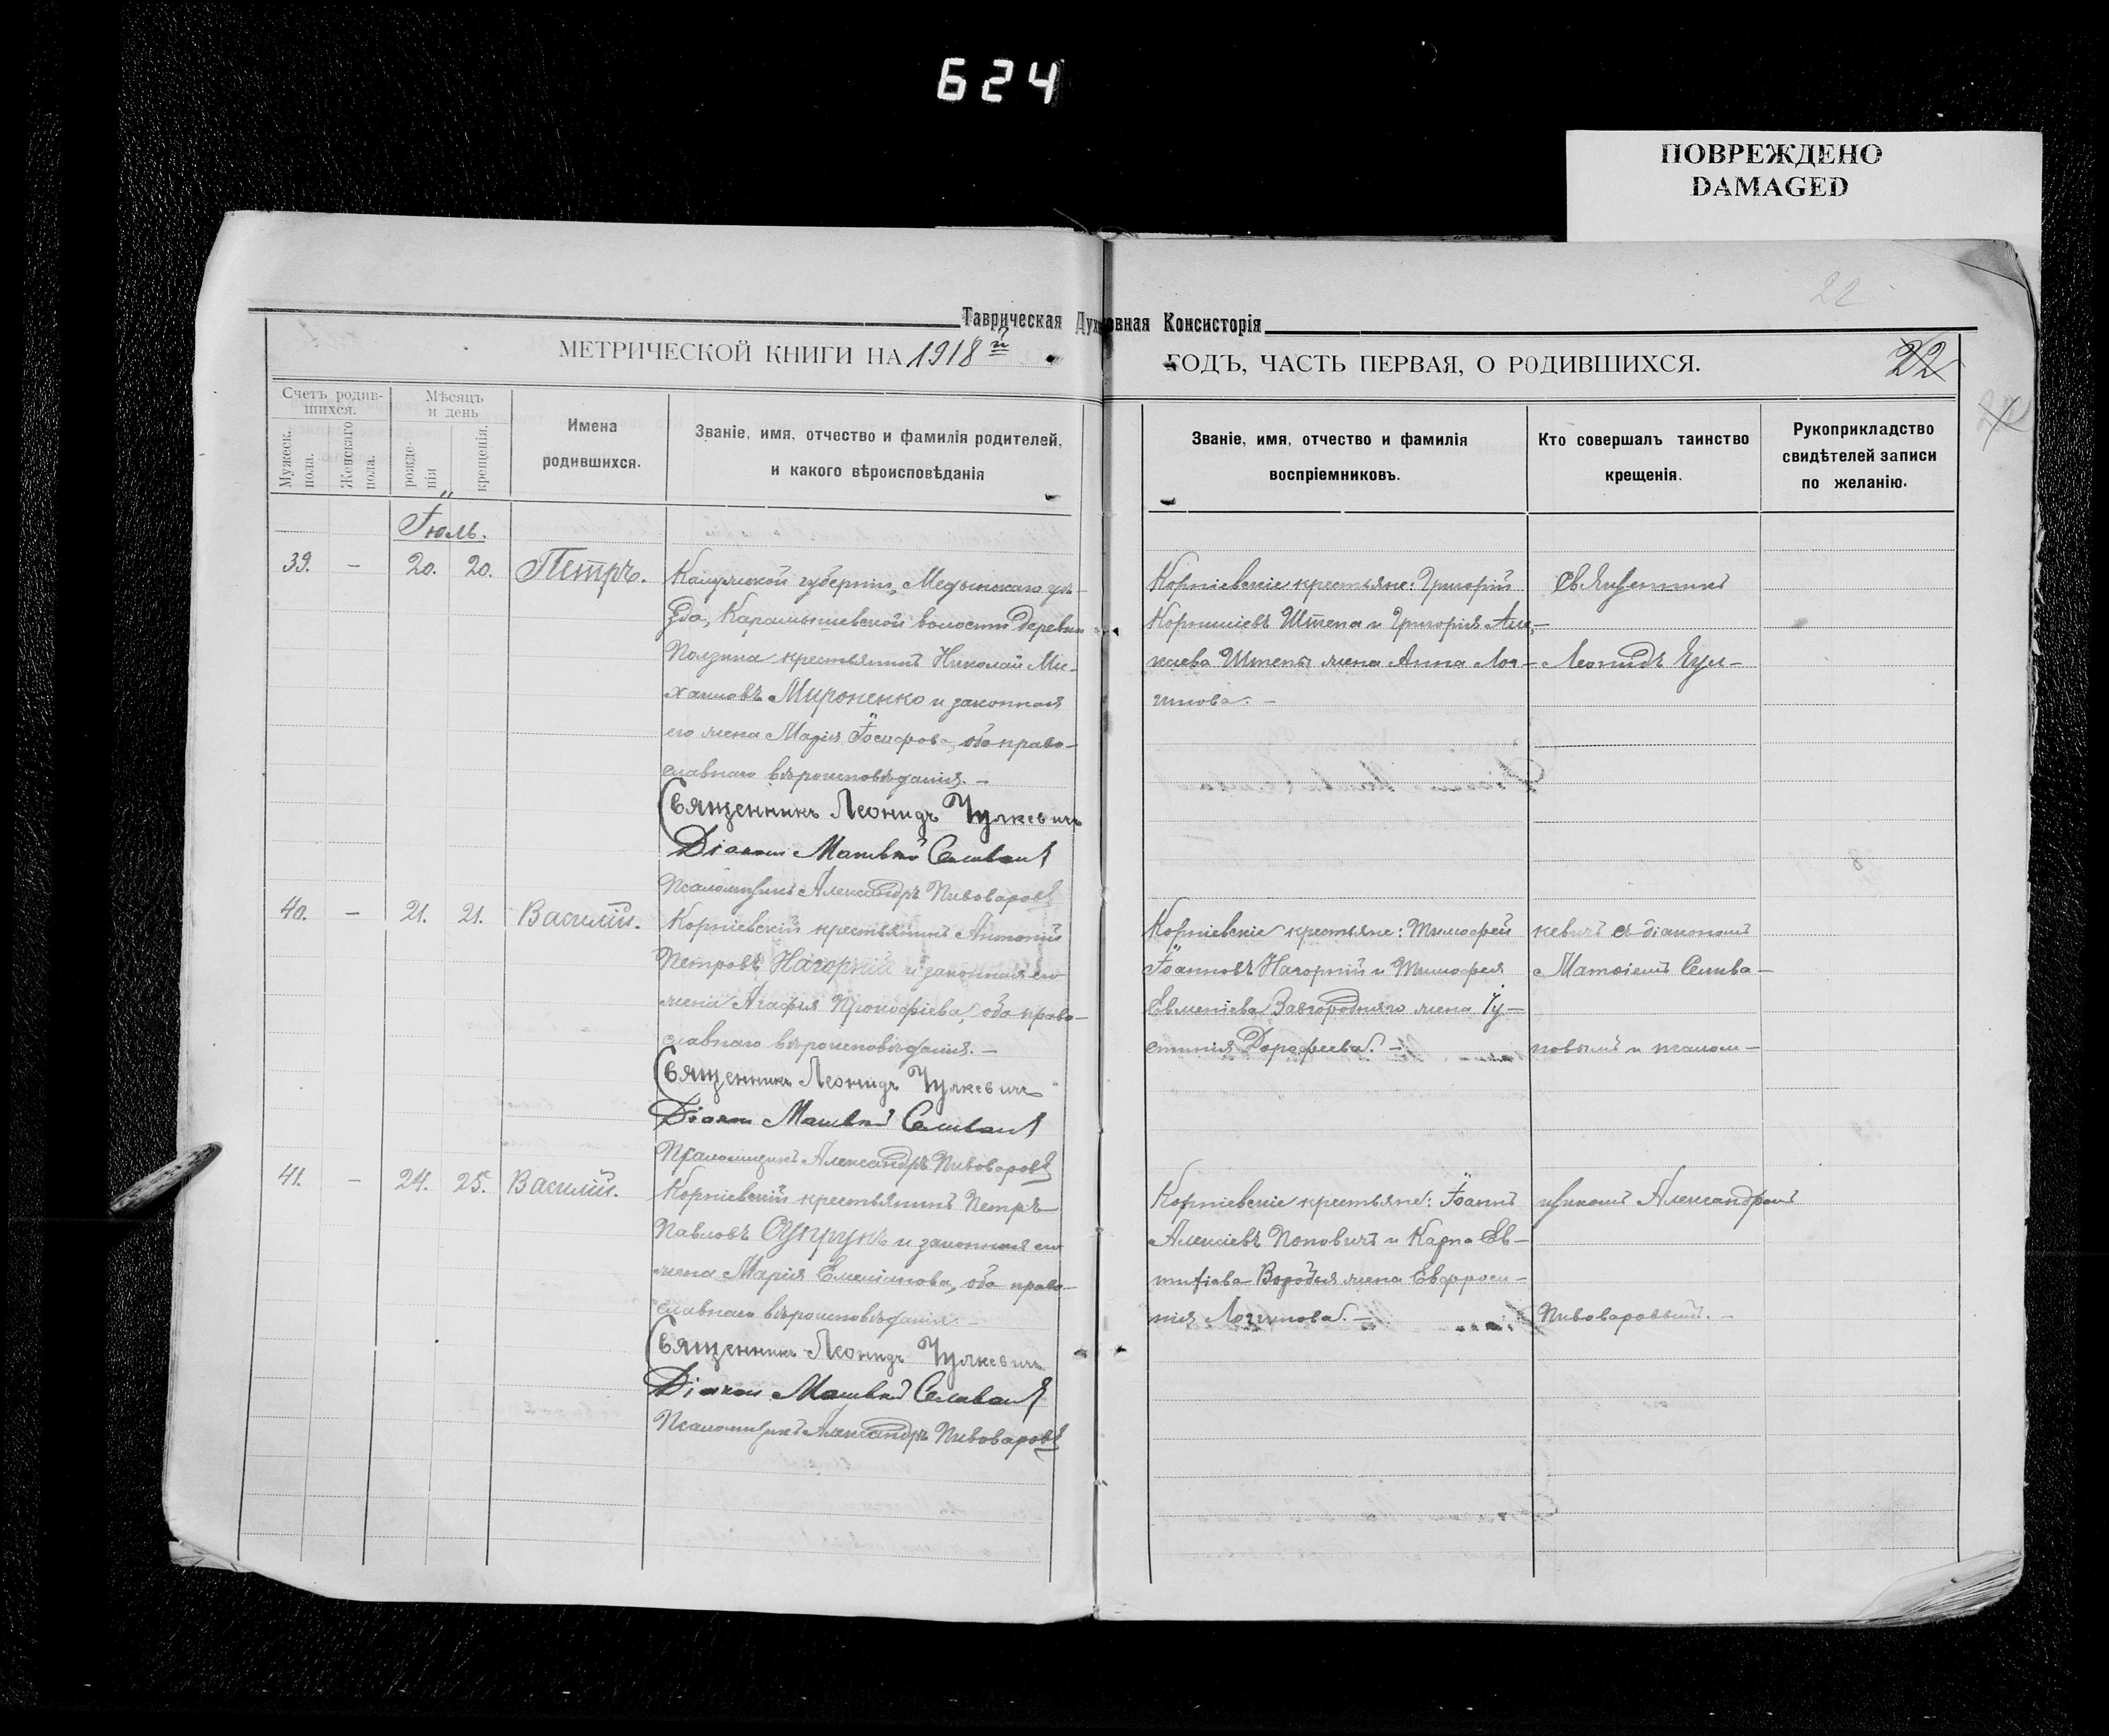 624
ПОВРЕЖДЕНО
DAMAGED
22
Таврическая Духовная Консисторія
МЕТРИЧЕСКОЙ КНИГИ НА 1918й ГОДЪ, ЧАСТЬ ПЕРВАЯ, О РОДИВШИХСЯ.
22
Счетъ родив-
шихся.
Мѣсяцъ
и день
Мужеск.
пола.
Женскаго
пола.
рожде-
нія
крещенія.
Имена
родившихся.
Званіе, имя, отчество и фамилія родителей,
и какого вѣроисповѣданія
Званіе, имя, отчество и фамилія
воспріемниковъ.
Кто совершалъ таинство
крещенія.
Рукоприкладство
свидѣтелей записи
по желанію.
Іюль.
39. — 20. 20. Петръ.
Калужской губерніи, Медынскаго уѣ-
зда, Карамышевской волости деревни
Ползина крестьянинъ Николай Ми-
хаиловъ Мироненко и законная
его жена Марія Іосифова, оба право-
славнаго вѣроисповѣданія. —
Священникъ Леонидъ Чулкевичъ
Діаконъ Матвей Селиванъ
Псаломщикъ Александръ Пивоваровъ
Корніевскіе крестьяне: Григорій
Корниліевъ Штепа и Григорія Але-
ксіева Штепы жена Анна Лон-
гинова. —
Священникъ
Леонидъ Чул-
40. — 21. 21. Василій.
Корніевскій крестьянинъ Антоній
Петровъ Нагорній и законная его
жена Агафія Прокофіева, оба право-
славнаго вѣроисповѣданія. —
Священникъ Леонидъ Чулкевичъ
Діаконъ Матвей Селиванъ
Псаломщикъ Александръ Пивоваровъ
Корніевскіе крестьяне: Тимофей
Іоанновъ Нагорній и Тимофея
Евменіева Завгородняго жена Іу-
стинія Дорофеева. —
кевичъ съ діакономъ
Матѳіемъ Селива-
новымъ и псалом-
41. — 24. 25. Василій.
Корніевскій крестьянинъ Петръ
Павловъ Супрунъ и законная его
жена Марія Емеліанова, оба право-
славнаго вѣроисповѣданія. —
Священникъ Леонидъ Чулкевичъ
Діаконъ Матвей Селиванъ
Псаломщикъ Александръ Пивоваровъ
Корніевскіе крестьяне: Іоаннъ
Алексіевъ Поповичъ и Карпа Ев-
жена Евфроси-
нія Логгинова. —
щикомъ Александромъ
Пивоваровымъ. —